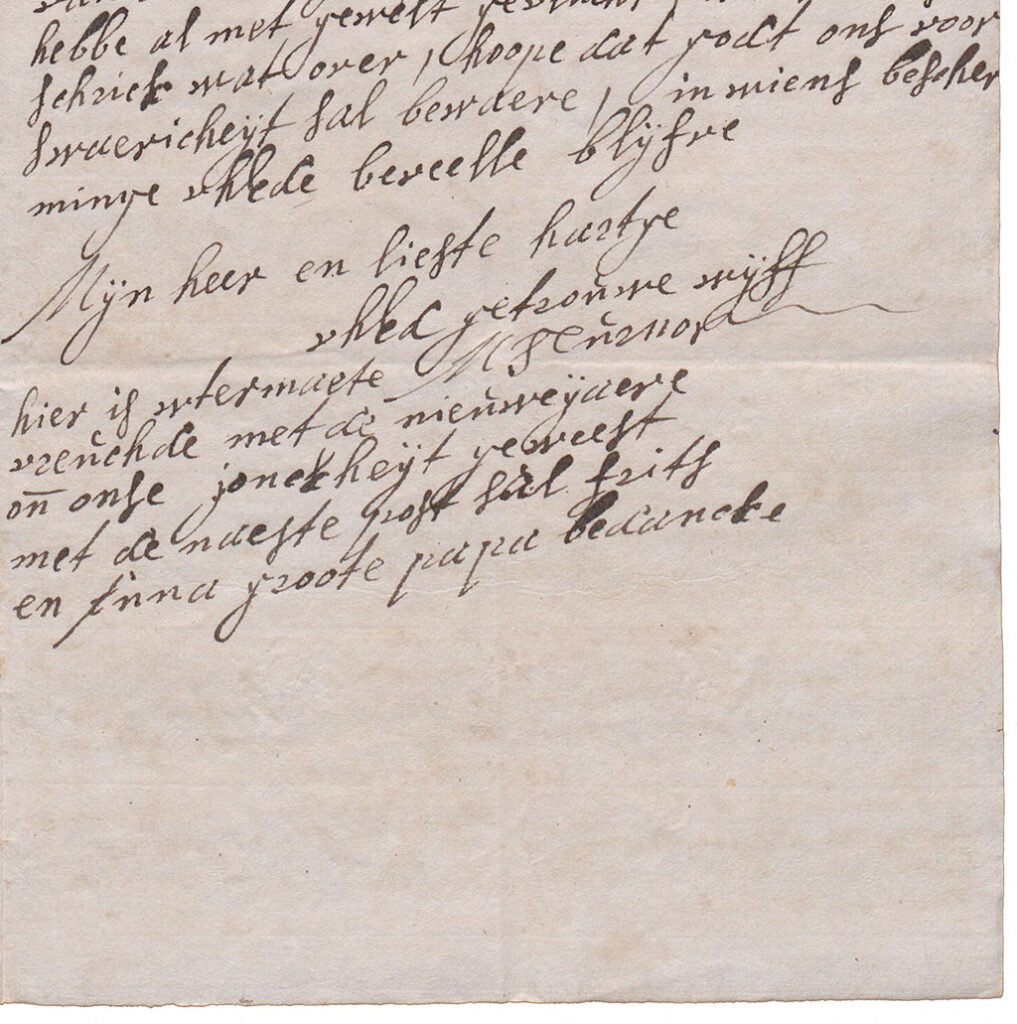 hebbe al met gewelt gevlucht
schrick wat over, ick hoope dat godt ons voor
swaericheÿt sal bewaere, in wiens bescher
minge uhEde beveelle blÿfve
Mÿn heer en liefste hartge
uhEd getrouwe wÿff
M Teurnor
hier is uytermaete
vreuchde met de nieuweyaere
on̅ onse jonckheÿt geweest
met de naeste post sal frits
en Anna groote papa bedancke